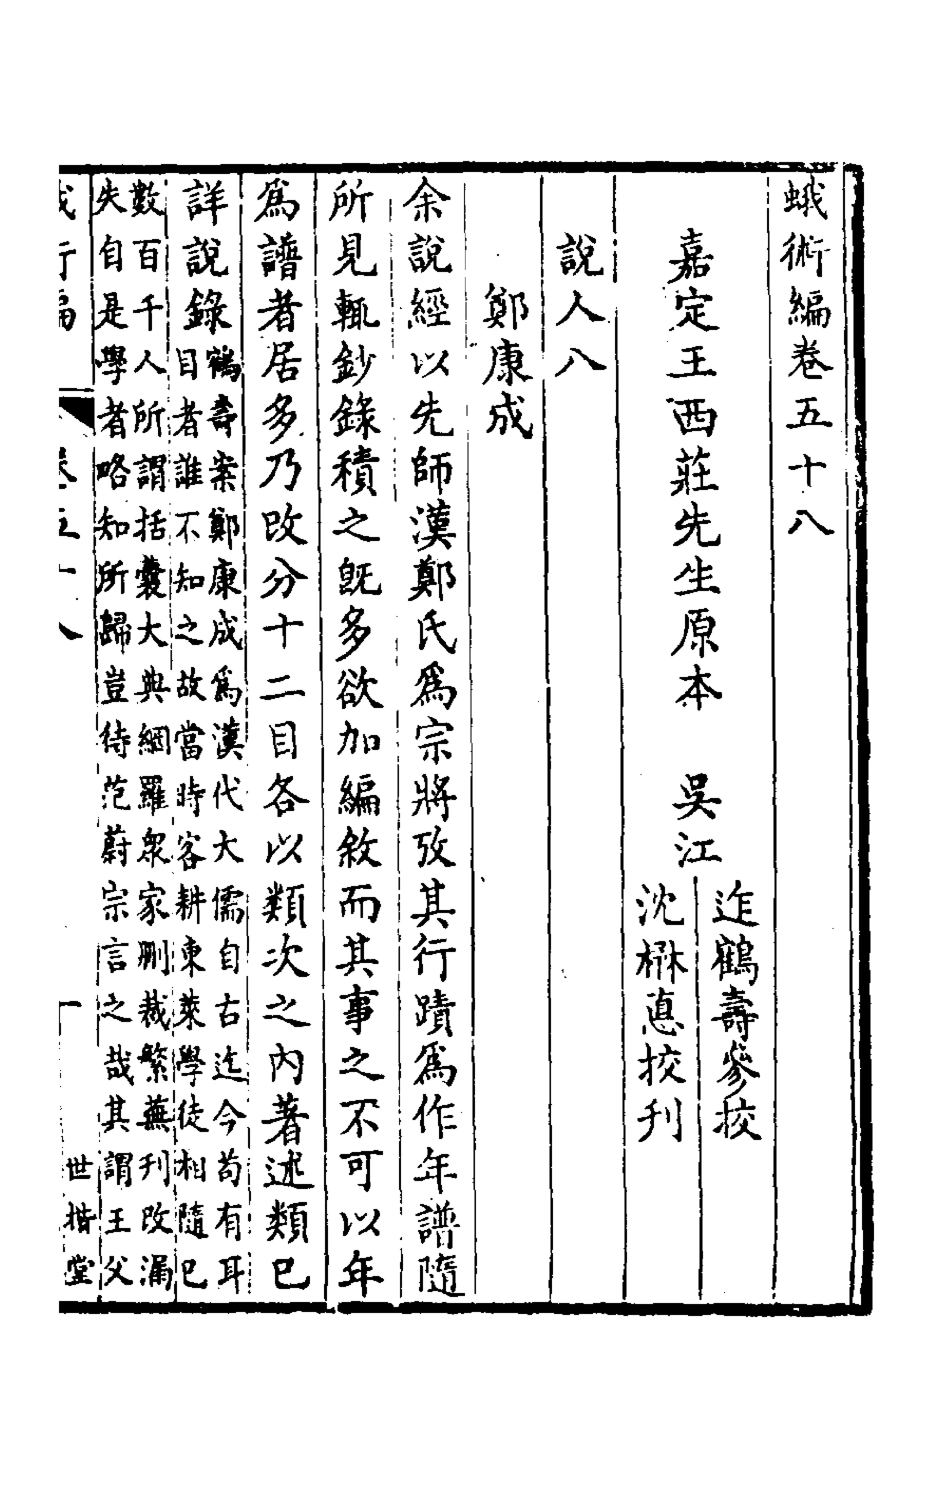 蛾術編卷五十八
嘉定王西莊先生原本　吳江
迮鶴壽參挍
沈楙悳挍刋
說人八
鄭康成
余說經以先師漢鄭氏爲宗將攷其行蹟爲作年譜隨
所見輒鈔錄積之旣多欲加編敘而其事之不可以年
爲譜者居多乃改分十二目各以類次之內著述類已
詳說錄
鶴壽案鄭康成爲漢代大儒自古迄今茍有耳
目者誰不知之故當時客耕東萊學徒相隨已
數百千人所謂括囊大典網羅衆家刪裁繁蕪刋改漏
失自是學者略知所歸豈待范蔚宗言之哉其謂王父
世楷堂